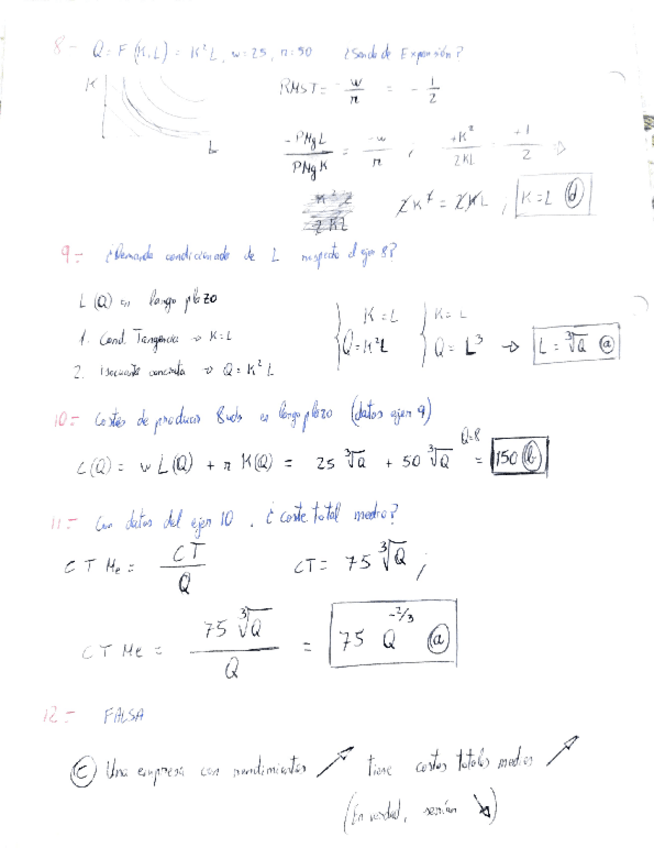 8- Q = F(K,L) = K²L, w=25, r=50 ¿Senda de Expansión?
K
RMST = -w/r = -1/2
L
-PMgL/PMgK = -w/r ; +K²/2KL = +1/2 ⇒
2K² = 2KL , K=L (d)
9.- ¿Demanda condicionada de L respecto al ejer 8?
L(Q) en largo plazo
1. Cond. Tangencia → K=L
2. Isocuanta concreta → Q=K²L
{ K=L
Q=K²L
{ K=L
Q = L³ → L = ∛Q (a)
10.- Costes de producir 8 uds en largo plazo (datos ejer 9)
C(Q) = w L(Q) + r K(Q) = 25 ∛Q + 50 ∛Q = (Q=8) 150 (b)
11.- Con datos del ejer 10, ¿coste total medio?
CTMe = CT/Q CT = 75 ∛Q ;
CTMe = 75 ∛Q/Q = 75 Q^-2/3 (a)
12- FALSA
(c) Una empresa con rendimientos ↗ tiene costes totales medios ↗
(En verdad, serían ↘)